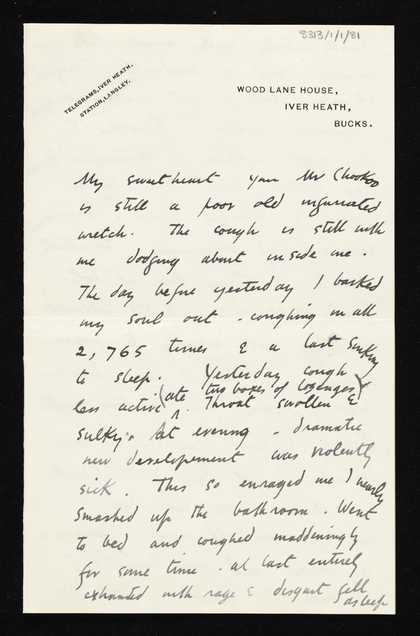 8313/1/1/81
TELEGRAMS, IVER HEATH.
STATION, LANGLEY.
WOOD LANE HOUSE,
IVER HEATH,
BUCKS.
My sweetheart your Mr Chookoo
is still a poor old infuriated
wretch. The cough is still with
me dodging about inside me.
The day before yesterday I barked
my soul out. coughing in all
2,765 times & a last
to sleep. Yesterday cough
less active (ate two boxes of lozenges)
Throat swollen &
sulky. At evening - dramatic
new developement was violently
sick. This so enraged me I nearly
smashed up the bathroom. Went
to bed and coughed maddeningly
for some time. at last entirely
exhausted with rage & disgust fell
asleep